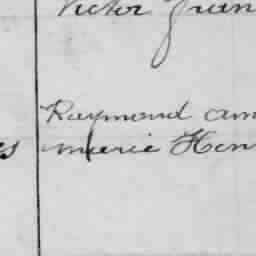 Victor Fran
Raymond am
es marie Hen